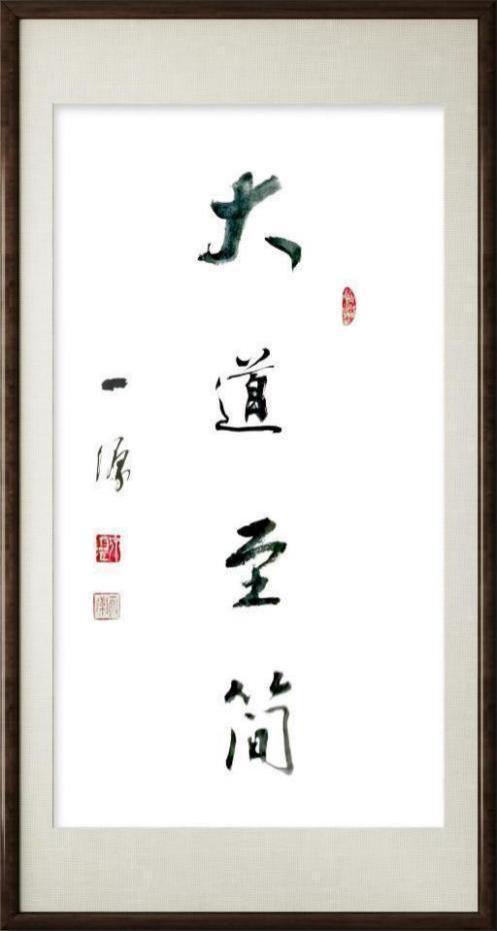 大道至简
一源